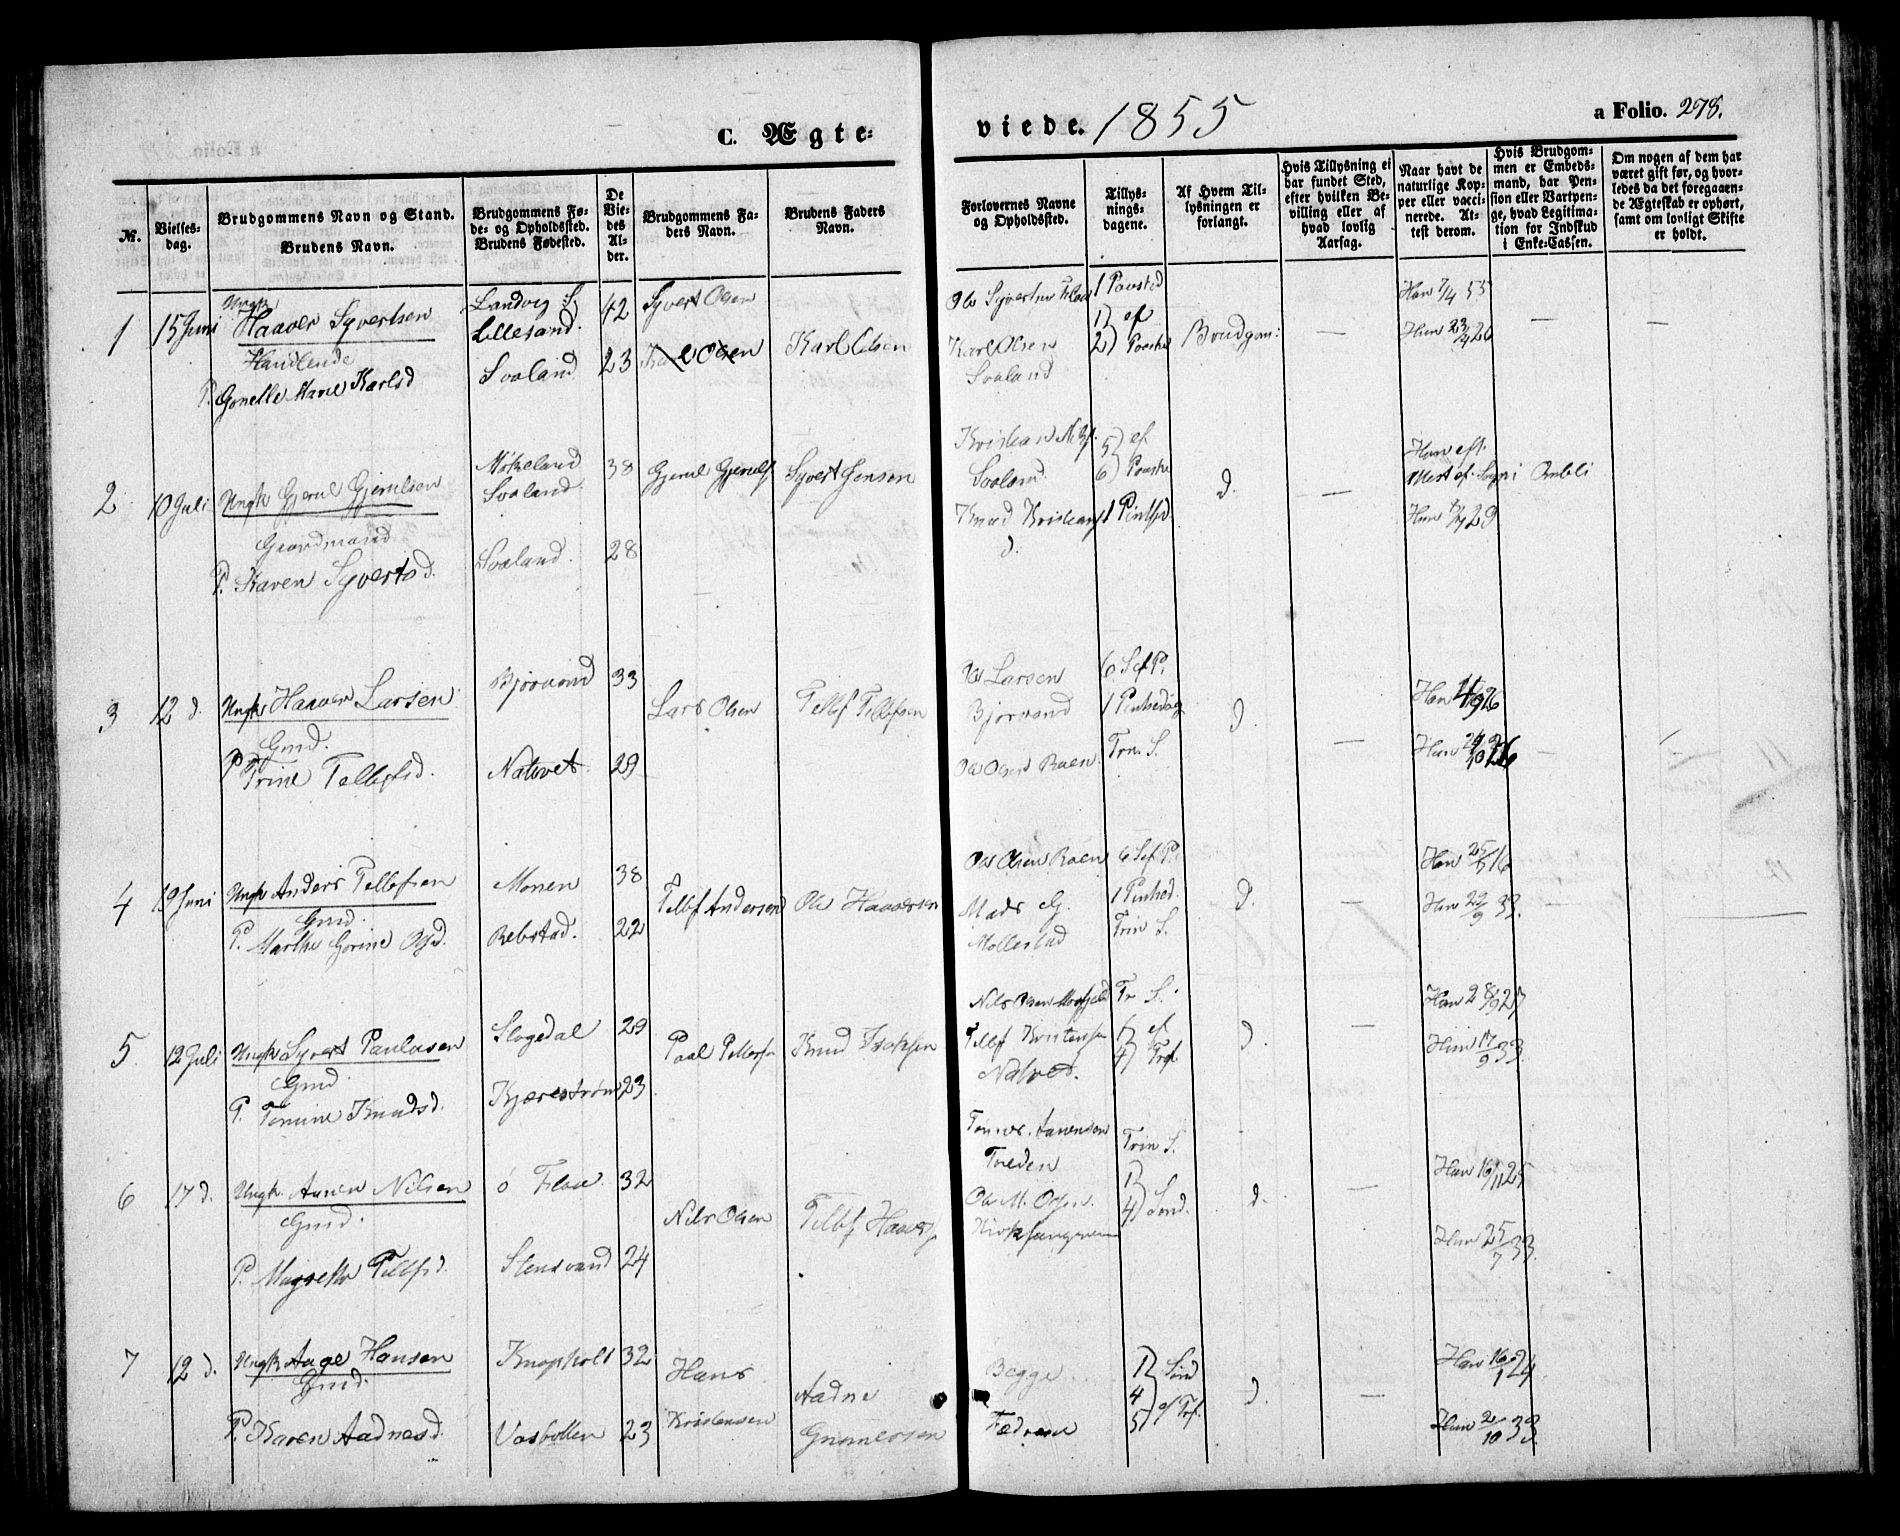 C. Ægte-
viede. 1855
a Folio. 278.
No.
Vielses-
dag.
Brudgommens Navn og Stand.
Brudens Navn.
Brudgommens Fø-
de- og Opholdssted.
Brudens Fødested.
De
Vie-
des
Al-
der.
Brudgommens Fa-
ders Navn.
Brudens Faders
Navn.
Forlovernes Navne
og Opholdssted.
Tillys-
nings-
dagene.
Af Hvem Til-
lysningen er
forlangt.
Hvis Tillysning ei
har fundet Sted,
efter hvilken Be-
villing eller af
hvad lovlig
Aarsag.
Naar havt de
naturlige Kop-
per eller vacci-
nerede. At-
test derom.
Hvis Brudgom-
men er Embeds-
mand, har Pen-
sion eller Vartpen-
ge, hvad Legitima-
tion for Indskud
i Enke-Cassen.
Om nogen af dem har
været gift før, og hvor-
ledes da det foregaaen-
de Ægteskab er ophørt,
samt om lovligt Skifte
er holdt.
1 15 Juni Ungk Haaver Syvertsen
Handlende
P. Gonelle Marie Karlsd
Landvig S
Lillesand. 42
Svaland 23
Syvert Olsen
Karl Olsen
Karl Olsen
Ole Syvertsen
Karl Olsen
Svaland
1 Paasked
1) ef
2) Paaske
Brudgom:
Han 7/4 55
Hun 23/4 26
2 10 Juli Ungk Gjerul Gjerulsen
Gaardmand
P. Karen Syvertsd.
Møkeland
Svaland 38
Svaland. 28
Gjerul Gjerulf
Syvert Jensen
Kristian
Svaland
Knud Kristians
d.
5) ef
6) Paaske
1 Pintsd.
d.
Han eft.
Attest ef.
Hun 29
3 12 d. Ungk Haaver Larsen
Gmd.
P Trine Tellefsd.
Bjorvand 33
Natvet 29
Lars Olsen
Tellf Tellefsen
Ole Larsen
Bjorvand
Ole Olsen Raen
6 S ef P.
1 Pintsedag
Trin. S.
d
Han 26
Hun 26
4 19 Juni Ungk Anders Tellefsen
Gmd.
P. Marthe Gorine Olsd.
Monen 38
Rebstad. 22
Tellf Andersen
Ole Haaversen
Ole Olsen Raen
Mads G.
Mollestad
6 S ef P.
1 Pintsed.
Trin S.
d.
Han 25/5 16
Hun 22/9 33.
5 12 Juli Ungk Syvert Paulusen
Gmd.
P. Tomine Knudsd.
Slogedal 29
Kjærestrøm 23
Paal Pettersn
Knud Isaksen
Nils Olsen
Tellf Kristensen
Natved.
Tr S.
1) ef
4) Tref.
d.
Han 28/9 27
Hun 17/9 33
6 17 d. Ungk. Aanen Nilsen
Gmd.
P. Magrethe Tellfsd.
ø Flaa. 32
Stensvand 24
Nils Olsen
Tellf Haavers
Aanensen
Tveden
Ole M. Olsen.
Trin S.
1)
4) Sønd.
d.
Han 16/11 25
Hun 25/7 33.
7 12 d. Ungk Aage Hansen
Gmd.
P. Karen Aadnesd.
Knapholt 32
Vasbotten 23
Hans
Kristensen
Aadne
Gunnersen
Begge
Fædrene
1) Sønd
4
5) e/ Tref.
d
Han 16/1 24
Hun 2/10 33